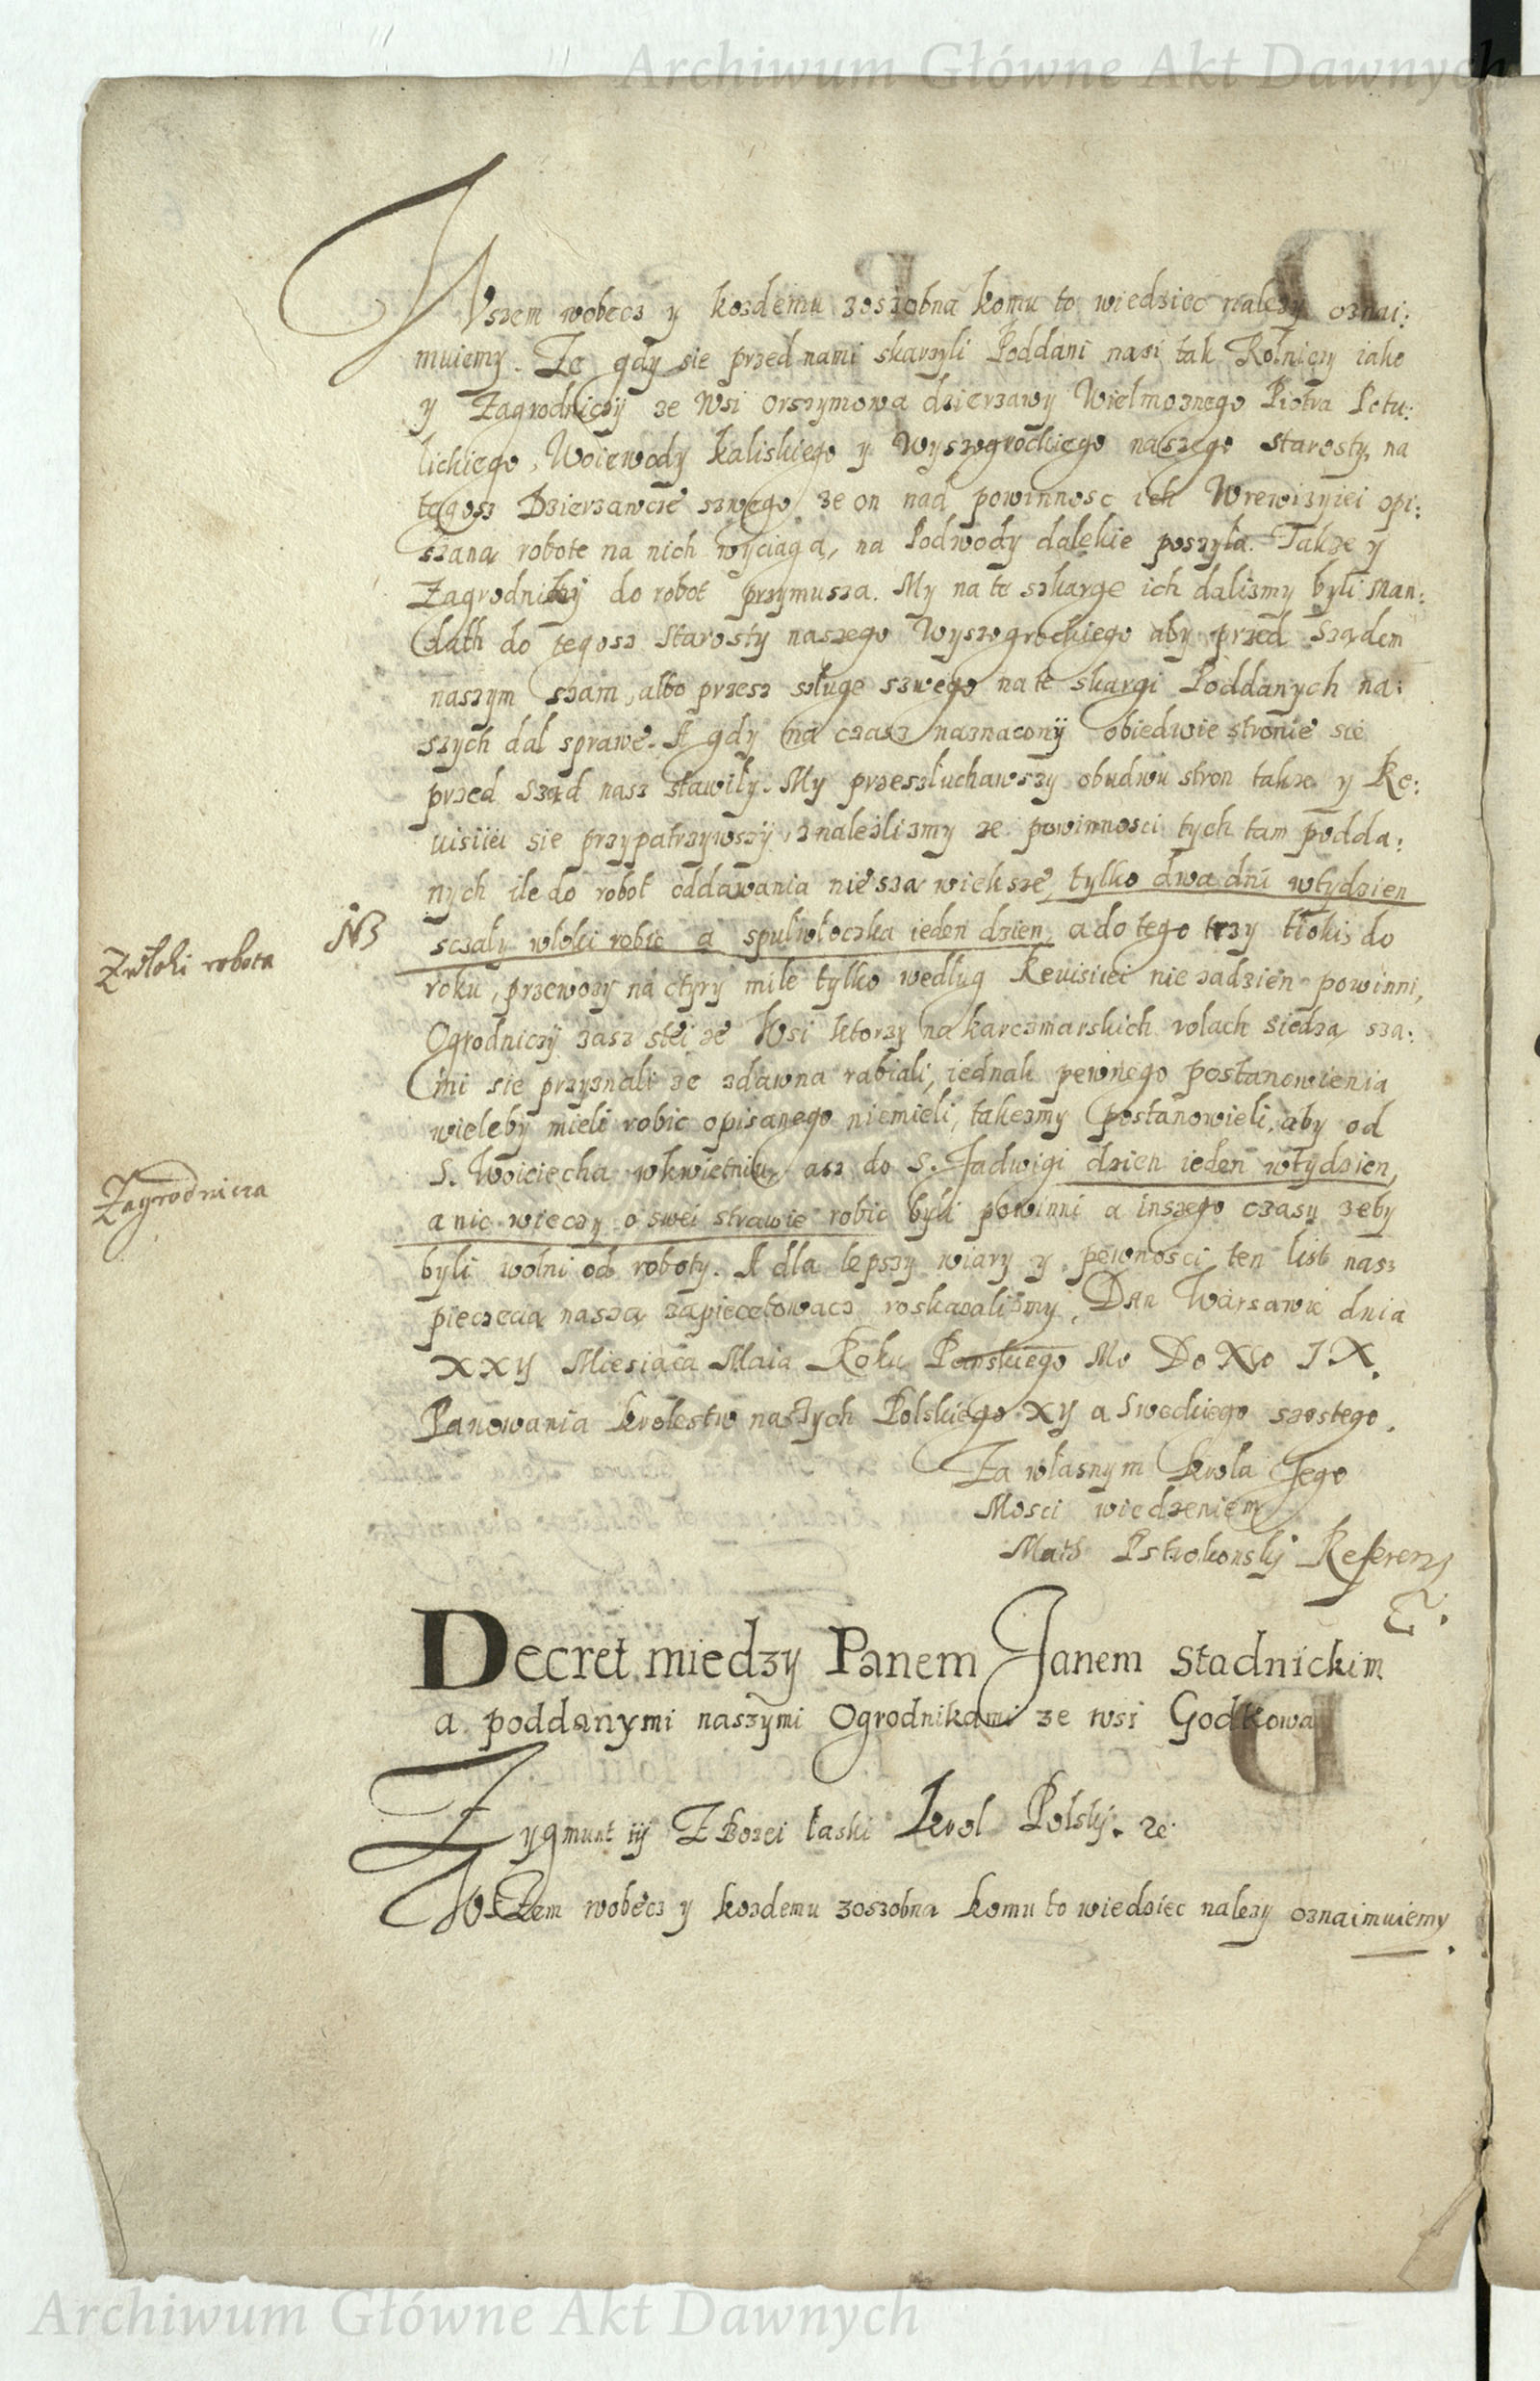 Archiwum Główne Akt Dawnych
Wszem wobecz y kozdemu zoszobna komu to wiedziec nalezy oznai:
muiemy. Ze gdy sie przed nami skarzyli Poddani nasi tak Rolniczy iako
y Zagrodniczy ze Wsi Orszymowa dzierzawy Wielmoznego Piotra Potu:
lickiego, Woiewody kaliskiego y Wyszogrockiego naszego Starosty, na
tegosz Dzierzawcze szwego ze on nad powinnosc ich Wrewizyiei opi:
szana robote na nich wyciaga, na Podwody dalekie poszyla. Takze y
Zagrodniky do robot przymusza. My na te szkarge ich dalismy byli Man:
dath do tegosz Starosty naszego Wyszogrockiego aby przed Szadem
naszym szam, albo przesz szluge szwego na te skargi Poddanych na:
szych dal sprawe. A gdy na czasz naznaczony obiedwie stronie sie
przed Szad nasz stawily. My przeszluchawszy obudwu stron takze y Re:
uisiiei sie przypatrzywszy, znalezlismy ze powinnosci tych tam podda:
nych ile do robot oddawania nie sza wieksze, tylko dwa dni wtydzien
sczaly wloki robic a spulwloczka ieden dzien, a do tego trzy tloki do
NB
Zwloki robota
roku, przewozy na cztyry mile tylko wedlug Reuisiiei nie zadzien powinni,
Ogrodniczy zasz stei ze Wsi ktorzy na karczmarskich rolach siedza sza:
mi sie przyznali ze zdawna rabiali, iednak pewnego postanowienia
wieleby mieli robic opisanego niemieli, takesmy postanowieli, aby od
S. Woiciecha wkwietniu asz do S. Jadwigi dzien ieden wtydzien,
Zagrodnicza
a nic wieczy o swei strawie robic byli powinni a inszego czasu zeby
byli wolni od roboty. A dla lepszy wiary y pewnosci ten list nasz
pieczecia nasza zapieczetowacz roskazalismy. Dan Warsawie dnia
XXV Miesiaca Maia Roku Panskiego Mo Do XCo IX.
Panowania krolestw naszych Polskiego XII a Swedkiego szostego.
Za wlasnym krola Jego
Mosci wiedzeniem
Math Pstrokonsky Referen
Decret miedzy Panem Janem Stadnickim
a poddanymi naszymi Ogrodnikami ze wsi Godkowa
Zygmunt iij Z Bozei laski krol Polsky. ze
Wszem wobecz y kozdemu zoszobna komu to wiedziec nalezy oznaimuiemy.
Archiwum Główne Akt Dawnych